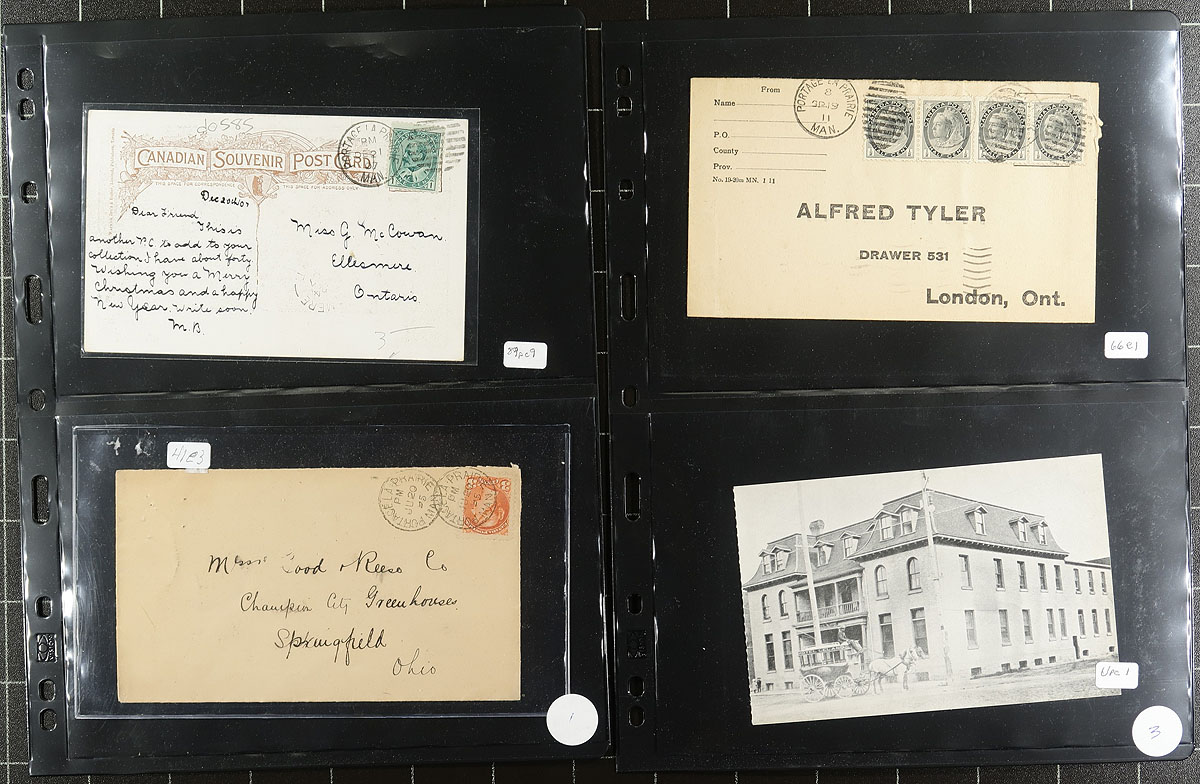 20585
CANADIAN SOUVENIR POST CARD
THIS SPACE FOR CORRESPONDENCE
THIS SPACE FOR ADDRESS ONLY
PORTAGE LA PRAIRIE
PM
MAN.
Dec 20th/07
Dear Friend
This is
another P.C. to add to your
collection, I have about forty.
Wishing you a Merry
Christmas and a happy
New Year. Write soon.
M.B.
Miss G. McCowan
Ellesmere
Ontario
3
39pc9
41e3
PORTAGE LA PRAIRIE
PM
JU 20
MAN
PORTAGE LA PRAIRIE
PM
MAN
Messrs Good & Reese Co
Champion City Greenhouses
Springfield
Ohio
1
PORTAGE LA PRAIRIE
8
SP 19
11
MAN.
From
Name
P.O.
County
Prov.
No. 19-20m MN. 1 11
ALFRED TYLER
DRAWER 531
London, Ont.
66e1
Upc 1
3